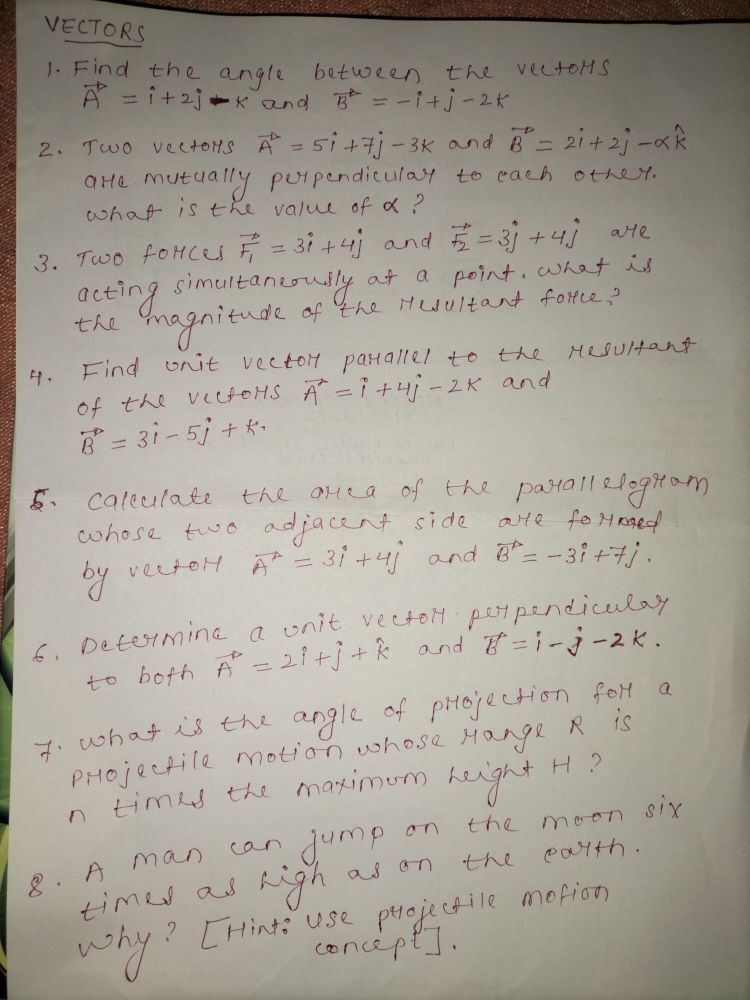 VECTORS
1. Find the angle between the vectors
A⃗ = i + 2j - k and B⃗ = -i + j - 2k
2. Two vectors A⃗ = 5i + 7j - 3k and B⃗ = 2i + 2j - αk̂
are mutually perpendicular to each other.
what is the value of α ?
3. Two forces F⃗₁ = 3i + 4j and F⃗₂ = 3j + 4j are
acting simultaneously at a point. what is
the magnitude of the resultant force?
4. Find unit vector parallel to the resultant
of the vectors A⃗ = i + 4j - 2k and
B⃗ = 3i - 5j + k.
5. calculate the area of the parallelogram
whose two adjacent side are formed
by vector A⃗ = 3i + 4j and B⃗ = -3i + 7j.
6. Determine a unit vector perpendicular
to both A⃗ = 2i + j + k̂ and B⃗ = i - j - 2k.
7. what is the angle of projection for a
projectile motion whose range R is
n times the maximum height H ?
8. A man can jump on the moon six
times as high as on the earth.
why? [Hint: use projectile motion
concept].